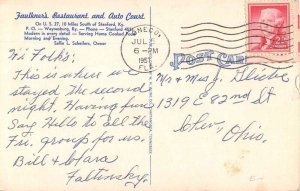 Faulkners Restaurant and Auto Court
On U. S. 27, 10 Miles South of Stanford, Ky.
P. O. — Waynesburg, Ky. Phone — Stanford
Modern in every detail — Serving Home Cooked Food
Morning and Evening.
Owner
JUL
6 - PM
195
FLA.
POST CARD
Hi Folks:
This is where we
stayed the second
night. Having fun
Say Hello to all the
Fri. group for us.
Bill & Clara
Faltinsky.
Mr & Mrs J.
1319 E 82nd St
Ohio.